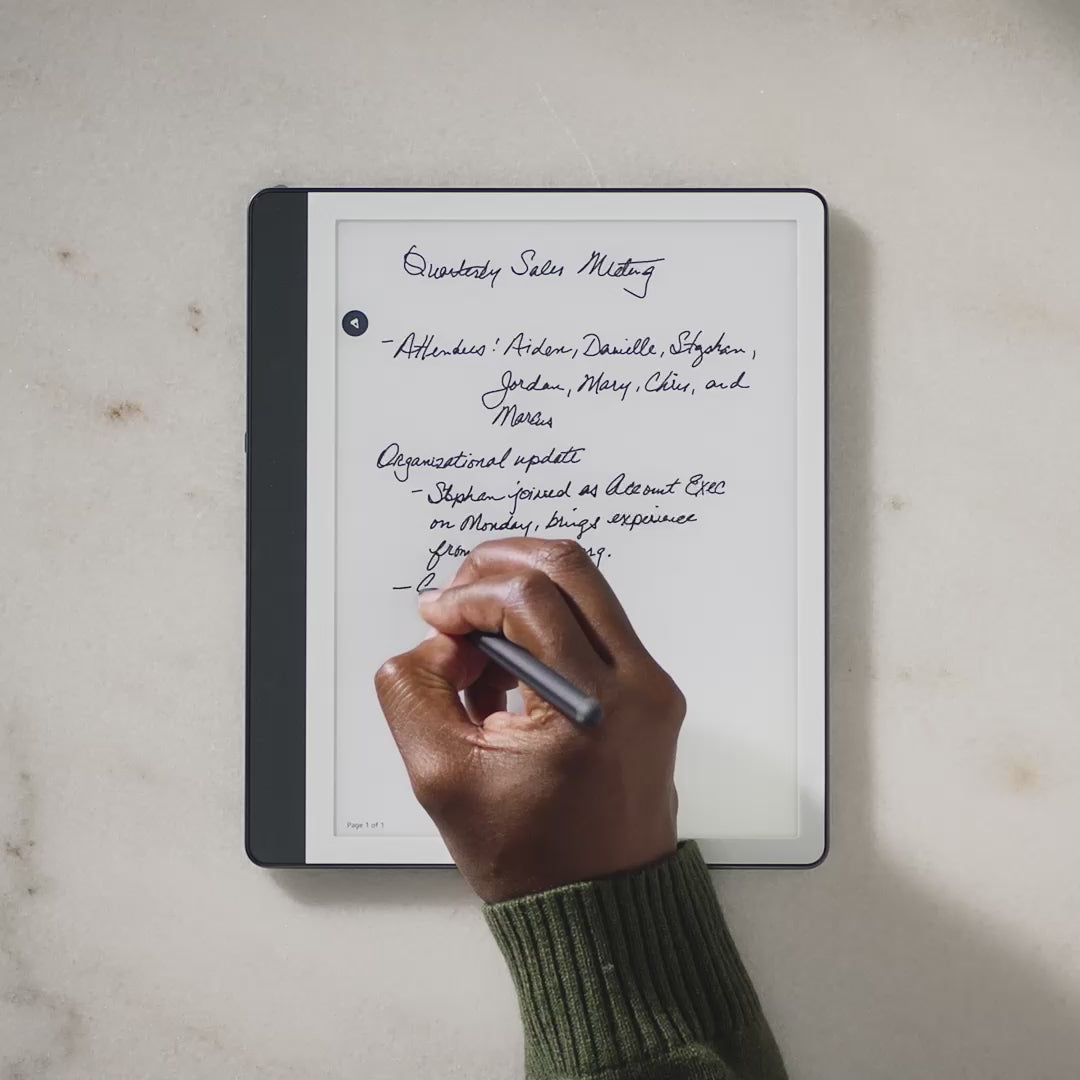 Quarterly Sales Meeting
- Attendees: Aiden, Danielle, Stephan,
Jordan, Mary, Chris, and
Marcus
Organizational update
- Stephan joined as Account Exec
on Monday, brings experience
from
-
Page 1 of 1